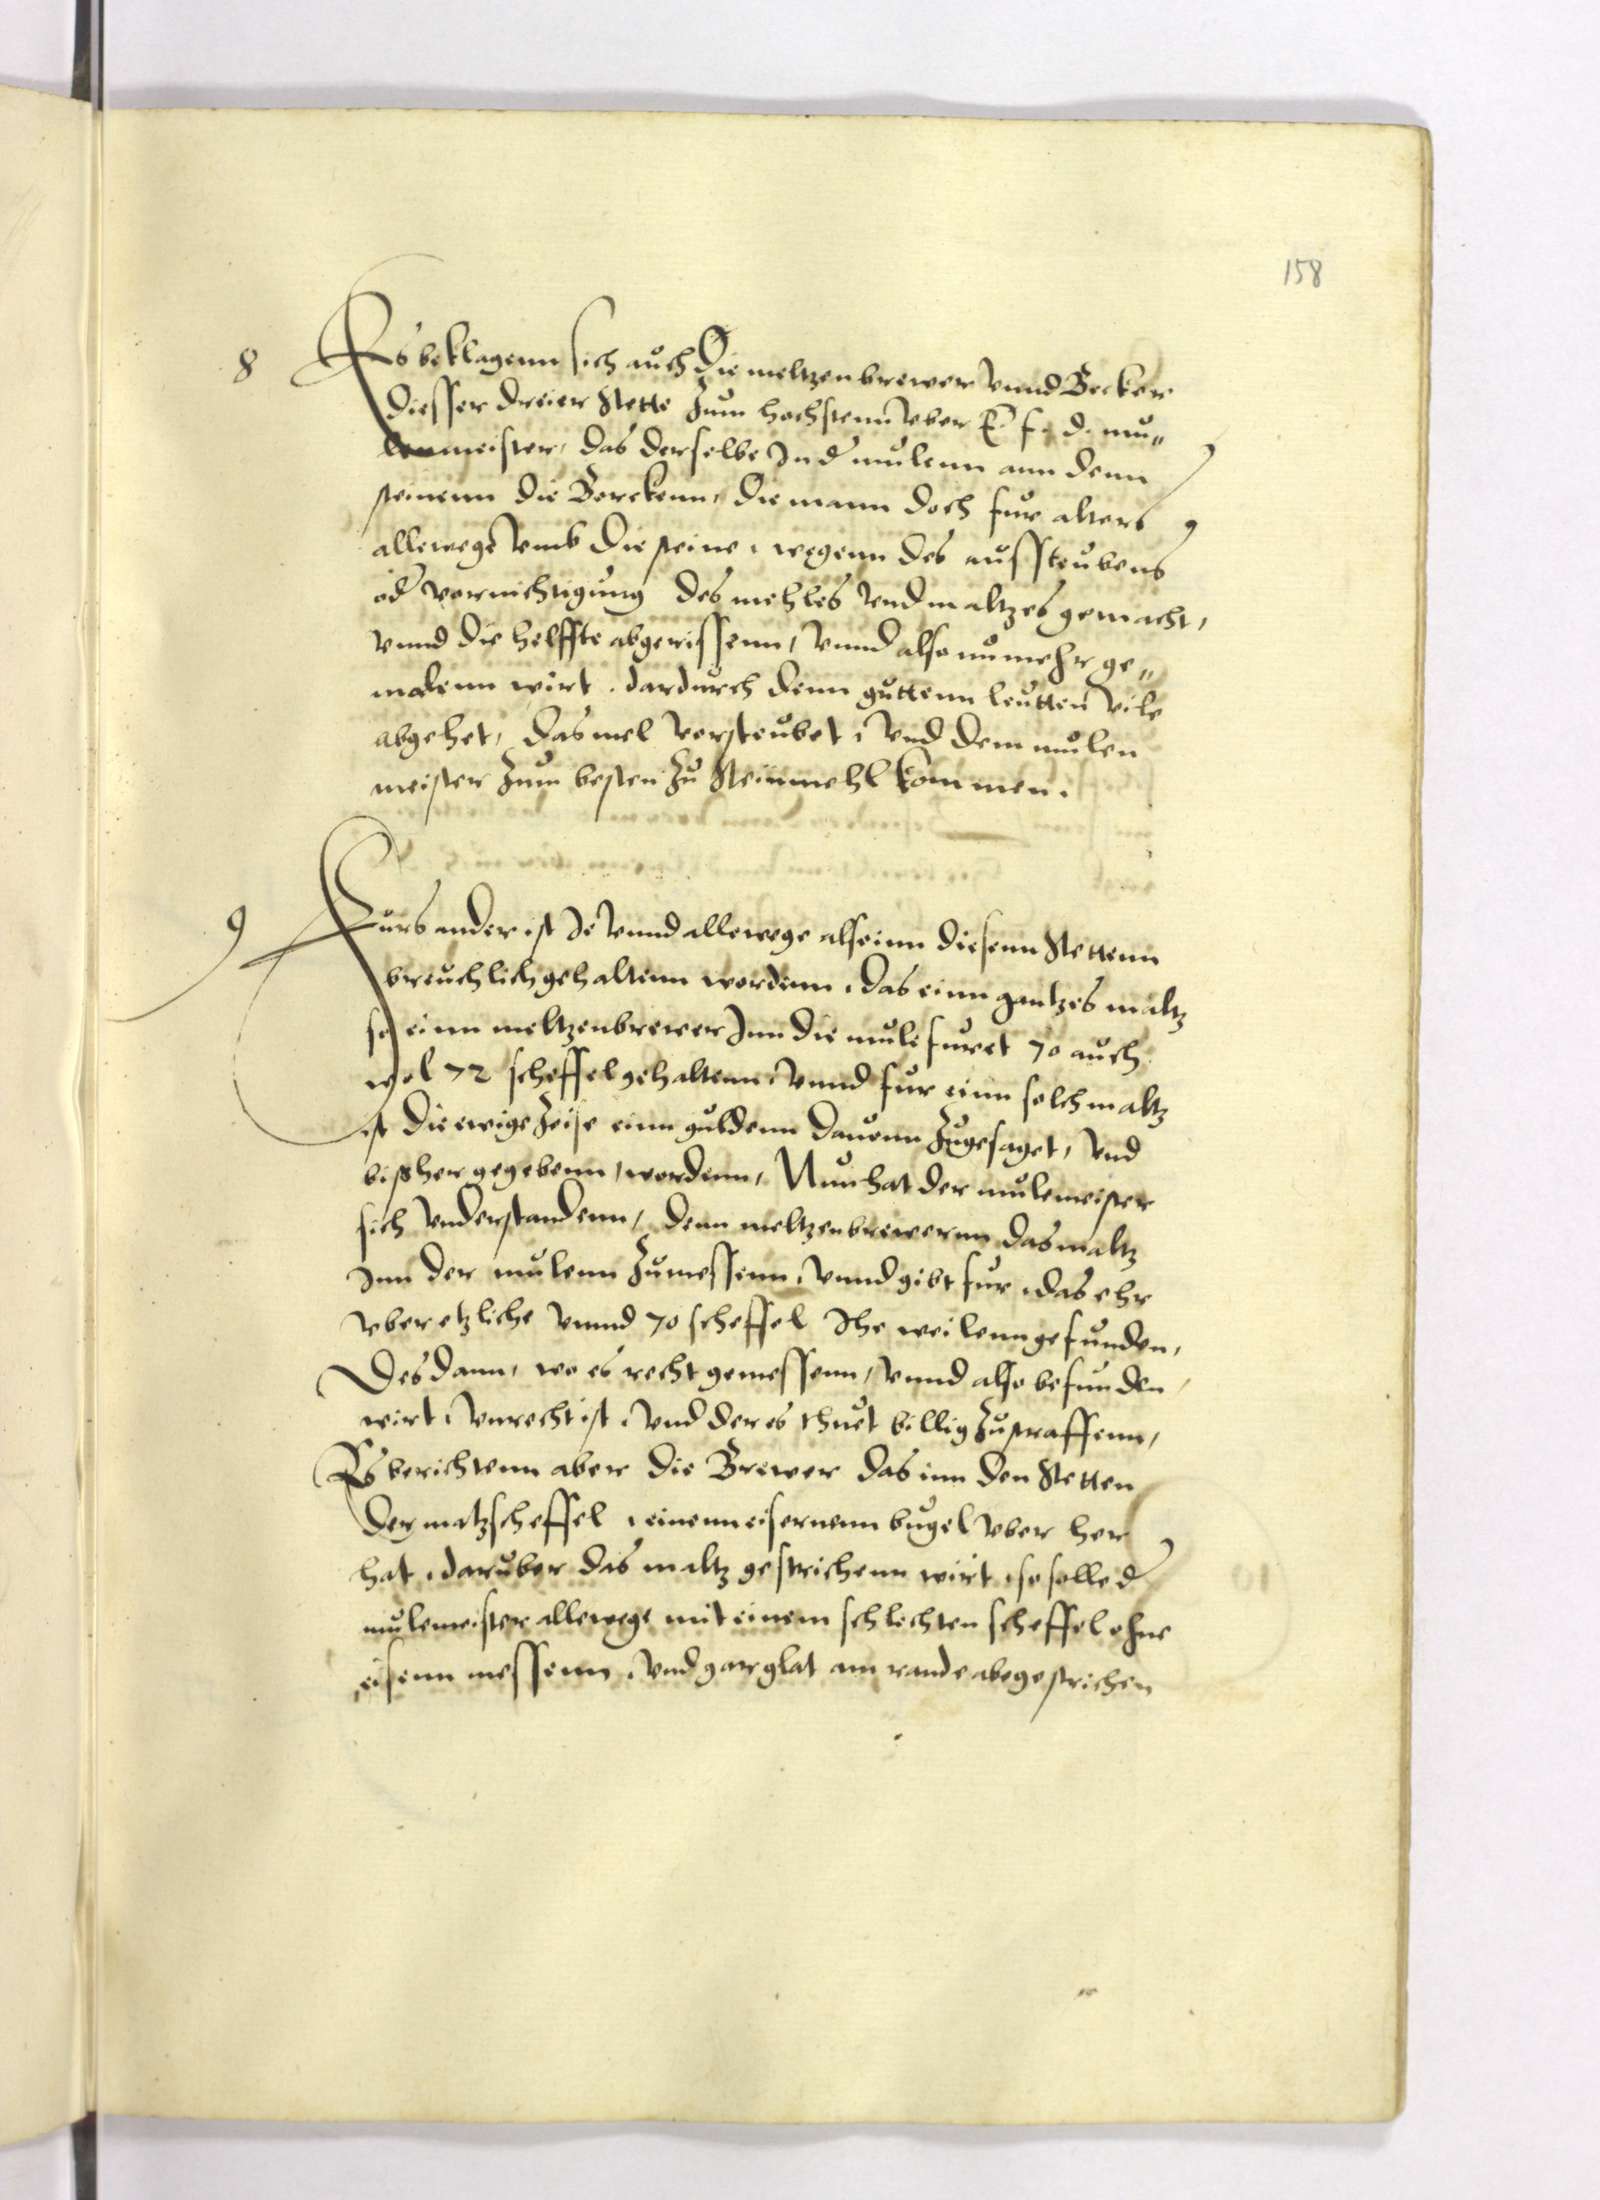 158
8 Es beklagenn sich auch die meltzenbrewer vnnd Becker
diesser dreier Stette zum hochstenn vber E. f. d. mu„
lenmeister, das derselbe Jn der mulenn ann denn
steinenn die Berckenn, die mann doch fur alters
allewege vmb die steine, wegenn des aufsteubens
od vernichtigung des mehles vnd maltzes gemacht,
vnnd die helffte abgerissenn, vnnd also nu mehr ge„
malenn wirt. dardurch denn guttenn leuttenn viele
abgehet, das mel versteubet, vnd dem mulen
meister zum besten zu Steinmehl kommen.
9 Furs ander ist Je vnnd allewege alhie inn diesenn Stettenn
breuchlich gehaltenn wordenn, das einn gantzes maltz
so einn meltzenbrewer Jnn die mule furet 70 auch
wol 72 scheffel gehaltenn, vnnd fur einn solch maltz
ist die ewige Zeise einn guldenn dauonn zugesaget, vnd
bisher gegebenn, wordenn, Nun hat der mulemeister
sich vnderstandenn, denn meltzenbrewernn das maltz
Jnn der mulenn zumessenn, vnnd gibt fur, das ehr
vber etzliche vnnd 70 scheffel Jhe weilenn gefunden,
Des dann, wo es recht gemessenn, vnnd also befunden,
wirt, vnrecht ist, vnd der es thuet billig zustraffenn,
Es berichtenn aber die Brewer das inn den Stetten
der matzscheffel, einenn eisernenn bugel vber her
hat, daruber das maltz gestrichenn wirt, so solle d
mulemeister allewege mit einem schlechten scheffel ohne
eisenn messenn, vnd gar glat am rande abegestrichen